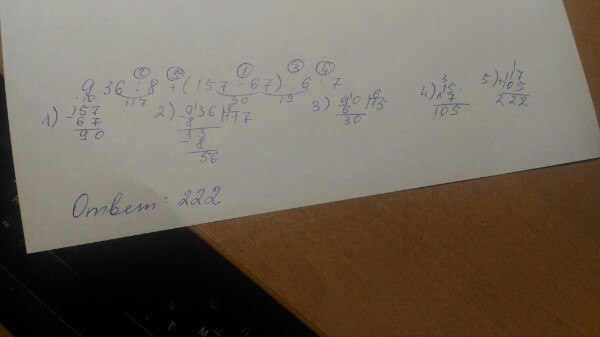 ② ⑤ ① ③ ④
936 : 8 + (157 - 67) : 6 · 7
117 90 15
1) 157 - 67 90
2) 936 8 117 - 8 13 - 8 56
3) 90 6 15 6 30
4) 3 15 · 7 105
5) 1 117 + 105 222
Ответ: 222